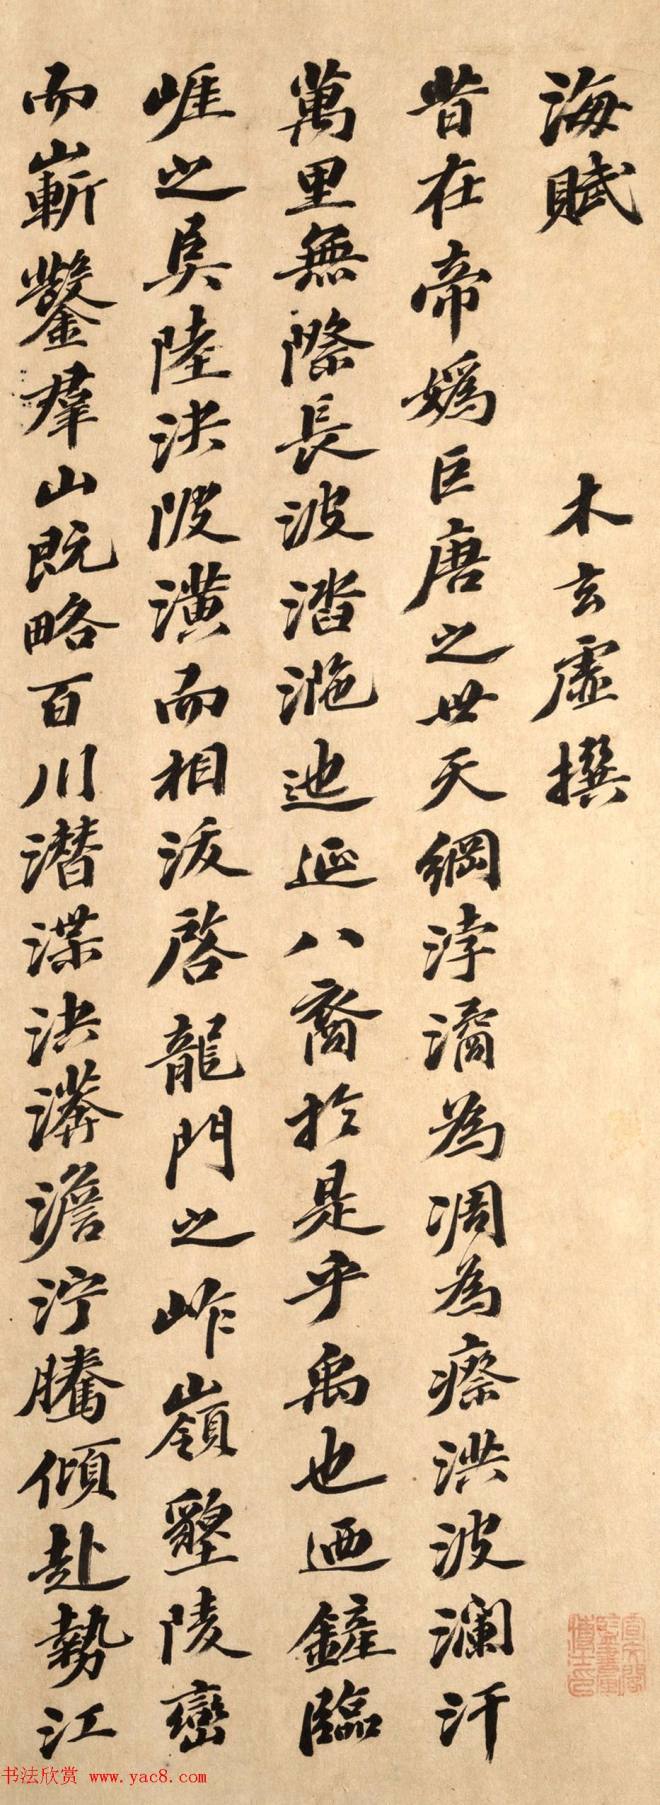 海賦 木玄虛撰
昔在帝媯巨唐之世天綱浡潏為凋為瘵洪波瀾汗
萬里無際長波涾迆延八裔於是乎禹也迺鏟臨
崖之阜陸決陂潢而相沷啓龍門之岞嶺墾陵巒
而嶄鑿羣山既略百川潛渫決漭澹泞騰傾赴勢江
书法欣赏 www.yac8.com